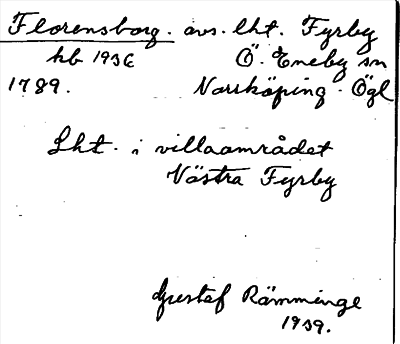 Florensborg. avs. lht. Fyrby
hb 1936 Ö. Eneby sn
1789. Norrköping. Ögl
Lht. i villaområdet
Västra Fyrby
Gustaf Rämminge
1939.